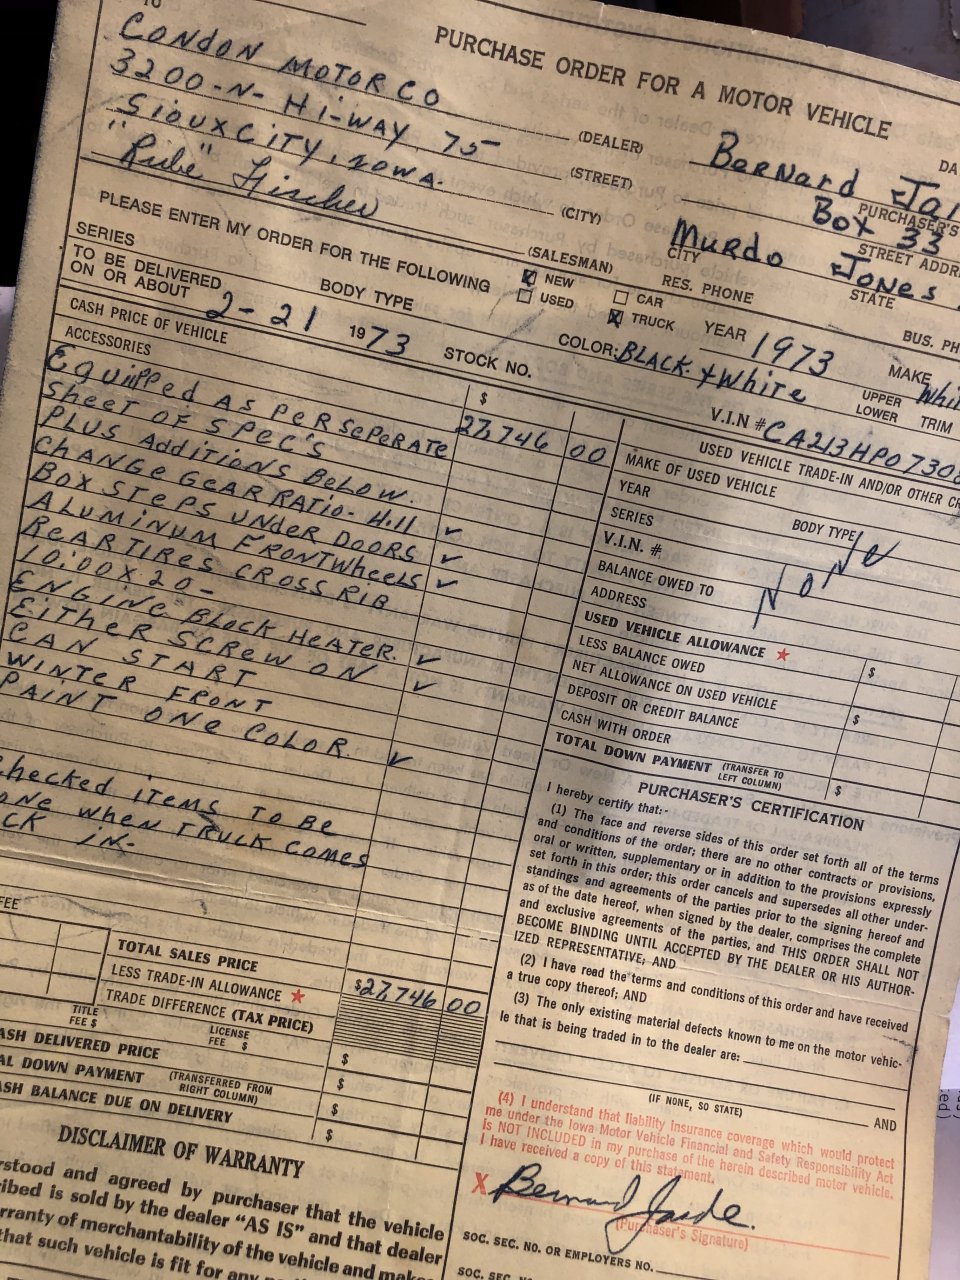 TO
PURCHASE ORDER FOR A MOTOR VEHICLE
DA
CONDON MOTOR CO
(DEALER)
3200-N-Hi-WAY 75
(STREET)
SiouxCiTY, IOWA.
(CITY)
"Rube" Fischer
(SALESMAN)
Bernard Jai
PURCHASER'S
Box 33
STREET ADDR
Murdo Jones
CITY
STATE
RES. PHONE
BUS. PH
PLEASE ENTER MY ORDER FOR THE FOLLOWING
NEW
USED
CAR
TRUCK
YEAR 1973
MAKE Whi
SERIES
BODY TYPE
COLOR: BLACK + White
UPPER
LOWER
TRIM
TO BE DELIVERED
ON OR ABOUT 2-21 1973
STOCK NO.
V.I.N # CA213HP0730
CASH PRICE OF VEHICLE
$
27,746 00
ACCESSORIES
Equipped As Per Seperate
Sheet of Spec's
Plus Additions Below.
Change Gear Ratio - Hill ✓
Box Steps Under Doors ✓
Aluminum Front Wheels ✓
Rear Tires Cross Rib
10:00 X 20 -
Engine Block Heater. ✓
Either Screw on ✓
Can Start
Winter Front
Paint One Color. ✓
hecked items To Be
one when Truck comes
ck in-
FEE
TOTAL SALES PRICE
$27,746 00
LESS TRADE-IN ALLOWANCE ★
TRADE DIFFERENCE (TAX PRICE)
TITLE
FEE $
LICENSE
FEE $
$
ASH DELIVERED PRICE
$
AL DOWN PAYMENT (TRANSFERRED FROM
RIGHT COLUMN)
$
ASH BALANCE DUE ON DELIVERY
$
DISCLAIMER OF WARRANTY
rstood and agreed by purchaser that the vehicle
ibed is sold by the dealer "AS IS" and that dealer
rranty of merchantability of the vehicle and makes
that such vehicle is fit for any
USED VEHICLE TRADE-IN AND/OR OTHER CR
MAKE OF USED VEHICLE
YEAR
BODY TYPE
SERIES
V.I.N. #
None
BALANCE OWED TO
ADDRESS
USED VEHICLE ALLOWANCE ★
$
LESS BALANCE OWED
NET ALLOWANCE ON USED VEHICLE
$
DEPOSIT OR CREDIT BALANCE
CASH WITH ORDER
TOTAL DOWN PAYMENT (TRANSFER TO
LEFT COLUMN)
$
PURCHASER'S CERTIFICATION
I hereby certify that:-
(1) The face and reverse sides of this order set forth all of the terms
and conditions of the order; there are no other contracts or provisions,
oral or written, supplementary or in addition to the provisions expressly
set forth in this order; this order cancels and supersedes all other under-
standings and agreements of the parties prior to the signing hereof and
as of the date hereof, when signed by the dealer, comprises the complete
and exclusive agreements of the parties, and THIS ORDER SHALL NOT
BECOME BINDING UNTIL ACCEPTED BY THE DEALER OR HIS AUTHOR-
IZED REPRESENTATIVE; AND
(2) I have read the terms and conditions of this order and have received
a true copy thereof; AND
(3) The only existing material defects known to me on the motor vehic-
le that is being traded in to the dealer are:
(IF NONE, SO STATE)
AND
(4) I understand that liability insurance coverage which would protect
me under the Iowa Motor Vehicle Financial and Safety Responsibility Act
is NOT INCLUDED in my purchase of the herein described motor vehicle.
I have received a copy of this statement.
X Bernard Jaide.
(Purchaser's Signature)
SOC. SEC. NO. OR EMPLOYERS NO.
SOC. SEC. NO. OR EMP